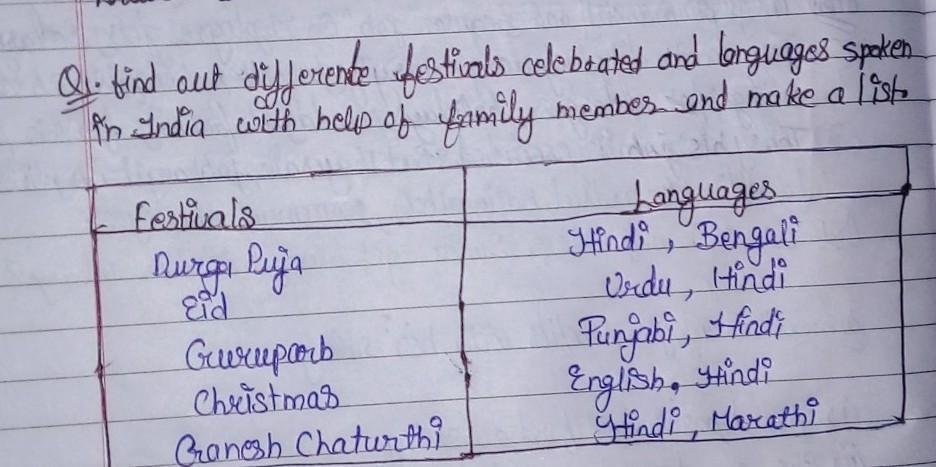 Q. find out differente festivals celebrated and languages spoken
in India with help of family member and make a list
Festivals Languages
Durga Puja Hindi, Bengali
Eid Urdu, Hindi
Guruparb Punjabi, Hindi
Christmas English, Hindi
Ganesh Chaturthi Hindi, Marathi